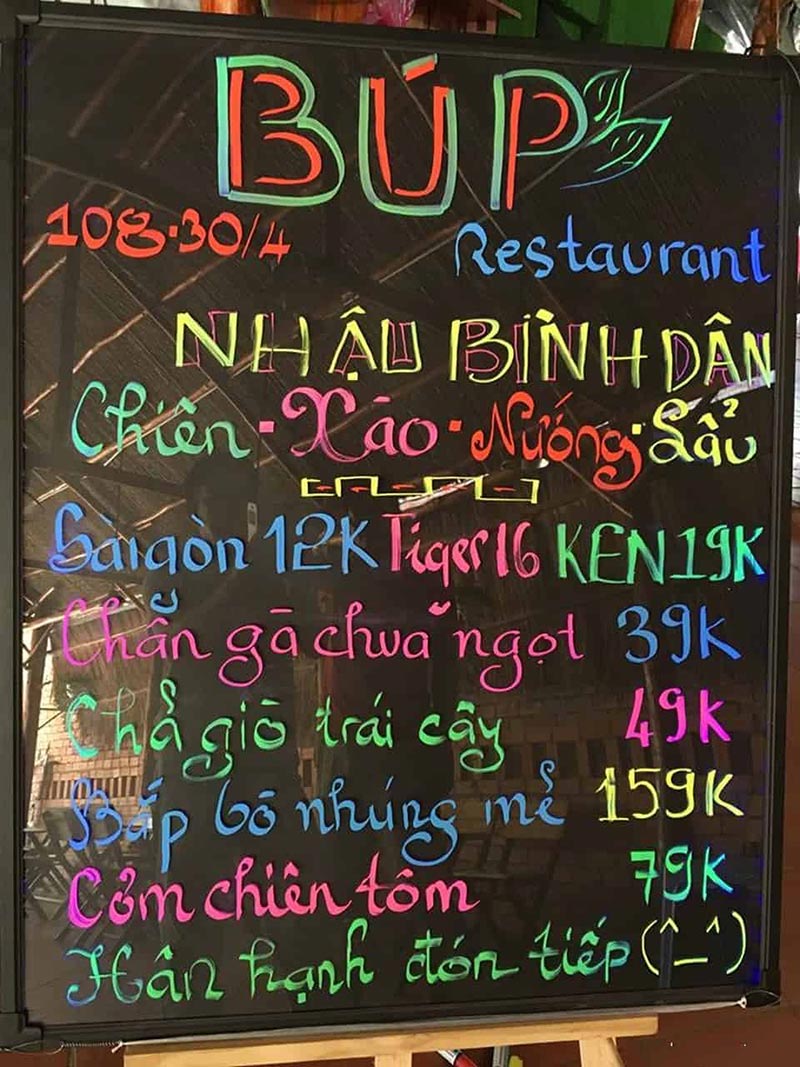 BÚP
108.30/4
Restaurant
NHẬU BÌNH DÂN
Chiên . Xào . Nướng . Lẩu
Sàigòn 12K Tiger 16 KEN 19K
Chân gà chua ngọt 39K
Chả giò trái cây 49K
Bắp bò nhúng mẻ 159K
Cơm chiên tôm 79K
Hân hạnh đón tiếp (^_^)